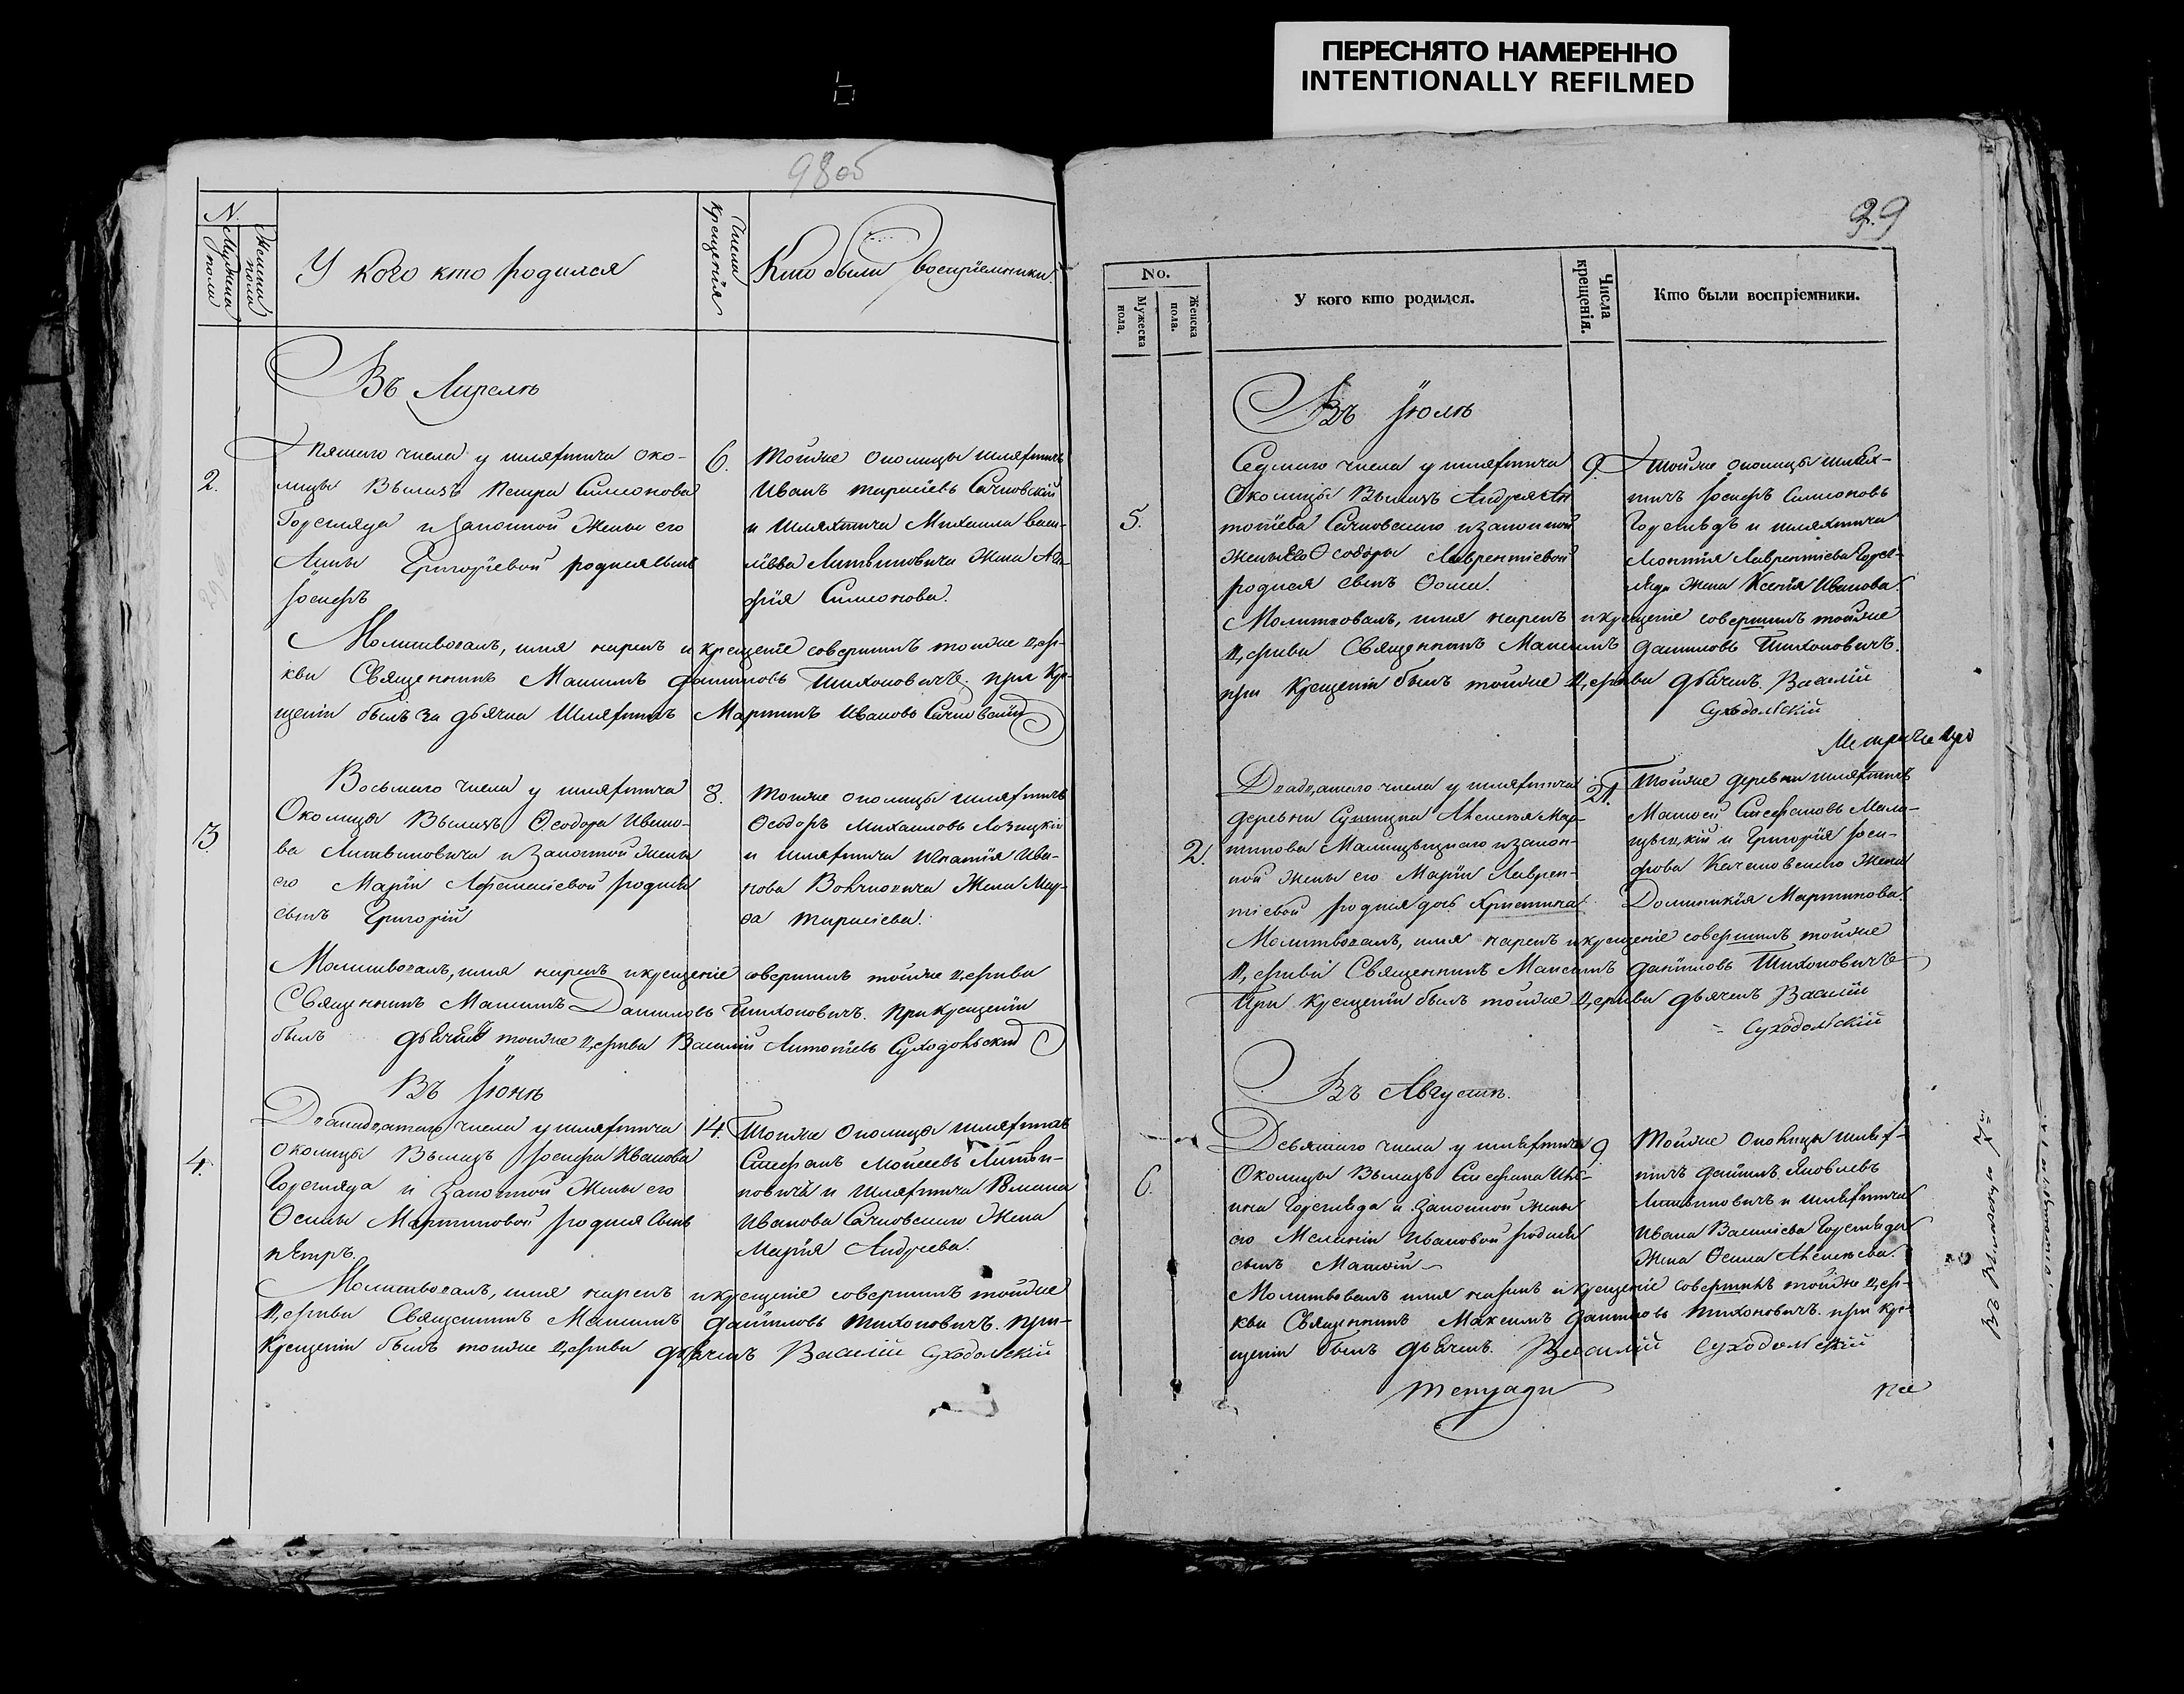 ПЕРЕСНЯТО НАМЕРЕННО
INTENTIONALLY REFILMED
98об
N.
Мужеска пола
Женска пола
У кого кто родился
Числа крещенія
Кто были воспріемники.
Въ Апрелѣ
2.
Пятаго числа у шляхтича око-
лицы Вымахъ Петра Симонова
Горегляда и законной жены его
Анны Григоріевой родился сынъ
Іосифъ
6.
тойже околицы шляхтичъ
Иванъ Тарасіевъ Сачковскій
и шляхтича Михаила Васи-
ліева Литвиновича жена Ага-
фія Симонова.
Молитвовалъ, имя нарекъ и крещеніе совершилъ тойже цер-
кви Священникъ Максимъ Даниловъ Тихоновичъ. при кре-
щеніи былъ за дьячка шляхтичъ Мартинъ Ивановъ Сачковскій
3.
Восьмаго числа у шляхтича
Околицы Вымахъ Ѳеодора Ивано-
ва Литвиновича и законной жены
его Маріи родился
сынъ Григорій
8.
тойже околицы шляхтичъ
Ѳеодоръ Михайловъ Лозицкій
и шляхтича Игнатія Ива-
нова жена Мар-
ѳа Тарасіева.
Молитвовалъ, имя нарекъ и крещеніе совершилъ тойже церкви
Священникъ Максимъ Даниловъ Тихоновичъ. при крещеніи
былъ дьячекъ тойже церкви Василій Антоніевъ Суходольскій
Въ Іюнѣ
4.
числа у шляхтича
околицы Вымахъ Іосифа Иванова
Горегляда и законной жены его
Мартиновой родился сынъ
Петръ.
14.
Тойже околицы шляхтичъ
Стефанъ Моисеевъ Литви-
новичъ и шляхтича Романа
Иванова Сачковскаго жена
Марія Андреева.
Молитвовалъ, имя нарекъ и крещеніе совершилъ тойже
церкви Священникъ Максимъ Даниловъ Тихоновичъ. при
крещеніи былъ тойже церкви дьячекъ Василій Суходольскій
99
No.
Мужеска пола.
Женска пола.
У кого кто родился.
Числа крещенія.
Кто были воспріемники.
Въ Іюлѣ
5.
Седмаго числа у шляхтича
Околицы Вымахъ Андрея Ан
тоніева Сачковскаго и законной
жены его Ѳеодоры Лаврентіевой
родился сынъ Ѳома.
9.
тойже околицы шлях-
тичъ Іосифъ Симоновъ
Гореглядъ и шляхтича
Леонтія Лаврентіева Горег-
ляда жена Ксенія Иванова.
Молитвовалъ, имя нарекъ и крещеніе совершилъ тойже
церкви Священникъ Максимъ Даниловъ Тихоновичъ.
при крещеніи былъ тойже церкви дьячекъ. Василій
Суходольскій
2.
Двадцатаго числа у шляхтича
деревни Алексея Мар-
тинова и закон-
ной жены его Маріи Лаврен-
тіевой родился дочь Христина
21.
Тойже деревни шляхтичъ
Матѳей Стефановъ
и Григорія Іоси-
фова жена
Доминикія Мартинова.
Молитвовалъ, имя нарекъ и крещеніе совершилъ тойже
церкви Священникъ Максимъ Даниловъ Тихоновичъ
При крещеніи былъ тойже церкви дьячекъ Василій
Суходольскій
Въ Августѣ.
6.
Девятаго числа у шляхтича
Околицы Вымахъ Стефана
Горегляда и законной жены
его Меланіи Ивановой родился
сынъ Матѳій
9
тойже околицы шлях-
тичъ Даніилъ Яковлевъ
Литвиновичъ и шляхтича
Ивана Василіева Горегляда
жена Алексѣева.
Молитвовалъ имя нарекъ и крещеніе совершилъ тойже цер-
кви Священникъ Максимъ Даниловъ Тихоновичъ. при кре-
щеніи былъ дьячекъ. Василій Суходольскій
тетради